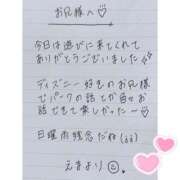 お兄様へ♡
今日は遊びに来てくれて
ありがとうございました
ディズニー好きのお兄様
でパークの話とか色々
お話できて楽しかったー♡
日曜雨残念だね(;;)
えまより☺